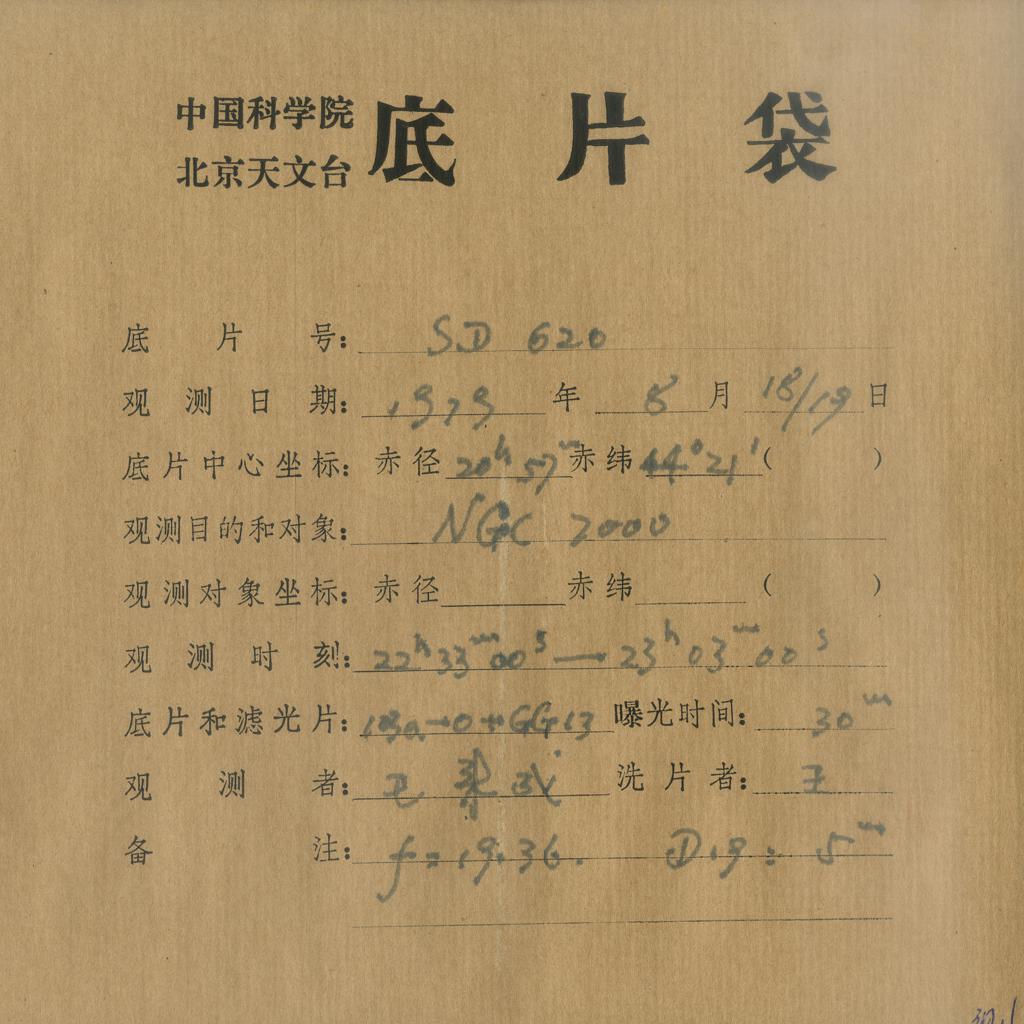 中国科学院
北京天文台 底片袋
底片号: SD 620
观测日期: 1979 年 8 月 18/19 日
底片中心坐标: 赤径 20h 57m 赤纬 44° 21' ( )
观测目的和对象: NGC 7000
观测对象坐标: 赤径 赤纬 ( )
观测时刻: 22h 33m 00s — 23h 03m 00s
底片和滤光片: 103a-O+GG13 曝光时间: 30m
观测者: 洗片者: 王
备注: f=19.36. D.19: 5m